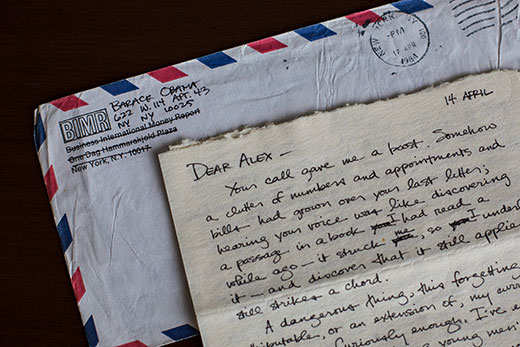 BARACK OBAMA
622 W. 114 APT. 43
NY NY 10025
BIMR
Business International Money Report
One Dag Hammarskjold Plaza
New York, N.Y. 10017
NEW YORK, NY 100
PM
17 APR
1984
14 APRIL
DEAR ALEX —
Your call gave me a boost. Somehow
a clutter of numbers and appointments and
bills had grown over your last letter;
hearing your voice was like discovering
a passage in a book I had read a
while ago — it struck me, so I underl
it — and discover that it still applie
still strikes a chord.
A dangerous thing, this forgetting
ibutable, or an extension of, my
Curiously enough, I've e
young men